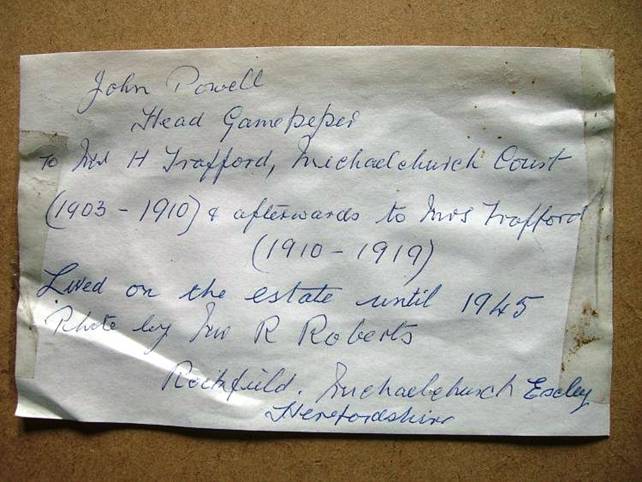 John Powell
Head Gamepeper
To Mr H Trafford, Michaelchurch Court
(1903 - 1910) & afterwards to Mrs Trafford
(1910 - 1919)
Lived on the estate until 1945
Photo by Mr R Roberts
Rockfield. Michaelchurch Escley
Herefordshire